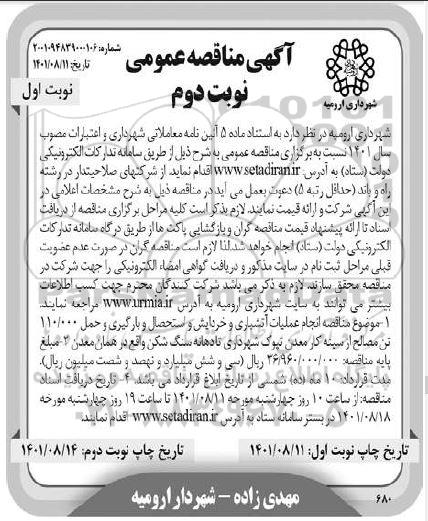 آگهی مناقصه عمومی
نوبت دوم
شماره: ۲۰۰۱۰۹۴۸۳۹۰۰۰۱۰۶
تاریخ: ۱۴۰۱/۰۸/۱۱
نوبت اول
شهرداری ارومیه
شهرداری ارومیه در نظر دارد به استناد ماده ۵ آئین نامه معاملاتی شهرداری و اعتبارات مصوب
سال ۱۴۰۱ نسبت به برگزاری مناقصه عمومی به شرح ذیل از طریق سامانه تدارکات الکترونیکی
دولت (ستاد) به آدرس: www.setadiran.ir اقدام نماید. از شرکتهای صلاحیتدار در رشته
راه و باند (حداقل رتبه ۵) دعوت بعمل می آید در مناقصه ذیل به شرح مشخصات اعلامی در
این آگهی شرکت و ارائه قیمت نمایند. لازم بذکر است کلیه مراحل برگزاری مناقصه از دریافت
اسناد تا ارائه پیشنهاد قیمت مناقصه گران و بازگشایی پاکت ها از طریق درگاه سامانه تدارکات
الکترونیکی دولت (ستاد) انجام خواهد شد. لذا لازم است مناقصه گران در صورت عدم عضویت
قبلی مراحل ثبت نام در سایت مذکور و دریافت گواهی امضاء الکترونیکی را جهت شرکت در
مناقصه محقق سازند. لازم به ذکر می باشد شرکت کنندگان محترم جهت کسب اطلاعات
بیشتر می توانند به سایت شهرداری ارومیه به آدرس www.urmia.ir مراجعه نمایند.
۱- موضوع مناقصه انجام عملیات آتشباری و خردایش و استحصال و بارگیری و حمل ۱۱۰/۰۰۰
تن مصالح از سینه کار معدن نپوک شهرداری تادهانه سنگ شکن واقع در همان معدن ۲- مبلغ
پایه مناقصه: ۳۶/۹۶۰/۰۰۰/۰۰۰ ریال (سی و شش میلیارد و نهصد و شصت میلیون ریال).
مدت قرارداد: ۱۰ ماه (ده) شمسی از تاریخ ابلاغ قرارداد می باشد ۴- تاریخ دریافت اسناد
مناقصه: از ساعت ۱۰ روز چهارشنبه مورخه ۱۴۰۱/۰۸/۱۱ تا ساعت ۱۹ روز چهارشنبه مورخه
۱۴۰۱/۰۸/۱۸ در بستر سامانه ستاد به آدرس www.setadiran.ir اقدام نمایند.
تاریخ چاپ نوبت اول: ۱۴۰۱/۰۸/۱۱ تاریخ چاپ نوبت دوم: ۱۴۰۱/۰۸/۱۴
مهدی زاده - شهردار ارومیه
۶۸۰